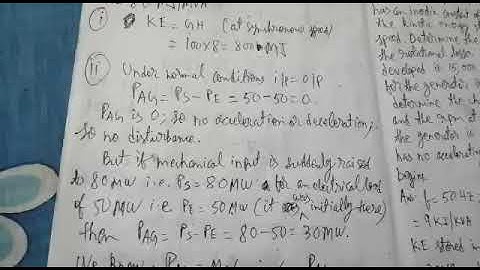 (i) KE = GH (at synchronous speed)
= 100x8 = 800 MJ
(ii) Under normal conditions i/p = o/p
PAG = PS - PE = 50-50 = 0.
PAG is 0; so no acceleration or deceleration;
So no disturbance.
But if mechanical input is suddenly raised
to 80MW i.e. PS = 80MW for an electrical load
of 50MW i.e. PE = 50MW (it was initially there)
then PAG = PS - PE = 80-50 = 30MW.
We know
has an inertia constant of
the kinetic energy
speed. Determine the
the rotational loss
developed is 15,000
for the generator
determine the
and the rpm at
the generator is
has no acceleration
begin.
Ans f = 50Hz
= 9KJ/KVA
KE stored in